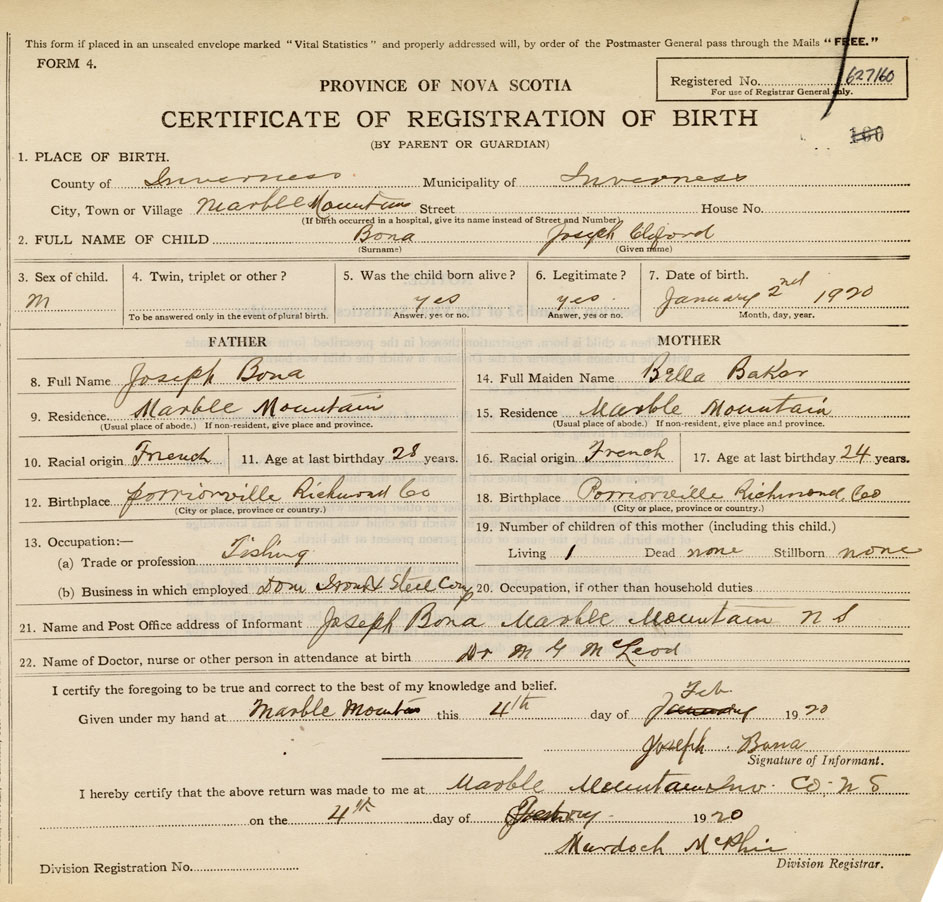 This form if placed in an unsealed envelope marked "Vital Statistics" and properly addressed will, by order of the Postmaster General pass through the Mails "FREE."
FORM 4.
Registered No. 627160
For use of Registrar General only.
PROVINCE OF NOVA SCOTIA
CERTIFICATE OF REGISTRATION OF BIRTH
160
(BY PARENT OR GUARDIAN)
1. PLACE OF BIRTH.
County of Inverness Municipality of Inverness
City, Town or Village Marble Mountain Street House No.
(If birth occurred in a hospital, give its name instead of Street and Number).
2. FULL NAME OF CHILD Bona Joseph Cliford
(Surname) (Given name)
3. Sex of child. 4. Twin, triplet or other? 5. Was the child born alive? 6. Legitimate? 7. Date of birth.
M yes yes January 2nd 1920
To be answered only in the event of plural birth. Answer, yes or no. Answer, yes or no. Month, day, year.
FATHER MOTHER
8. Full Name Joseph Bona 14. Full Maiden Name Bella Baker
9. Residence Marble Mountain 15. Residence Marble Mountain
(Usual place of abode.) If non-resident, give place and province. (Usual place of abode.) If non-resident, give place and province.
10. Racial origin French 11. Age at last birthday 28 years. 16. Racial origin French 17. Age at last birthday 24 years.
12. Birthplace Richmond Co 18. Birthplace Richmond Co
(City or place, province or country.) (City or place, province or country.)
13. Occupation:— 19. Number of children of this mother (including this child.)
(a) Trade or profession Fishing Living 1 Dead none Stillborn none
(b) Business in which employed Dom Iron & Steel Comp 20. Occupation, if other than household duties
21. Name and Post Office address of Informant Joseph Bona Marble Mountain N S
22. Name of Doctor, nurse or other person in attendance at birth Dr M G McLeod
I certify the foregoing to be true and correct to the best of my knowledge and belief.
Feb
Given under my hand at Marble Mountain this 4th day of January 1920
Joseph Bona
Signature of Informant.
I hereby certify that the above return was made to me at Marble Mountain Inv. Co. N S
on the 4th day of 1920
Murdoch McPhie
Division Registration No. Division Registrar.